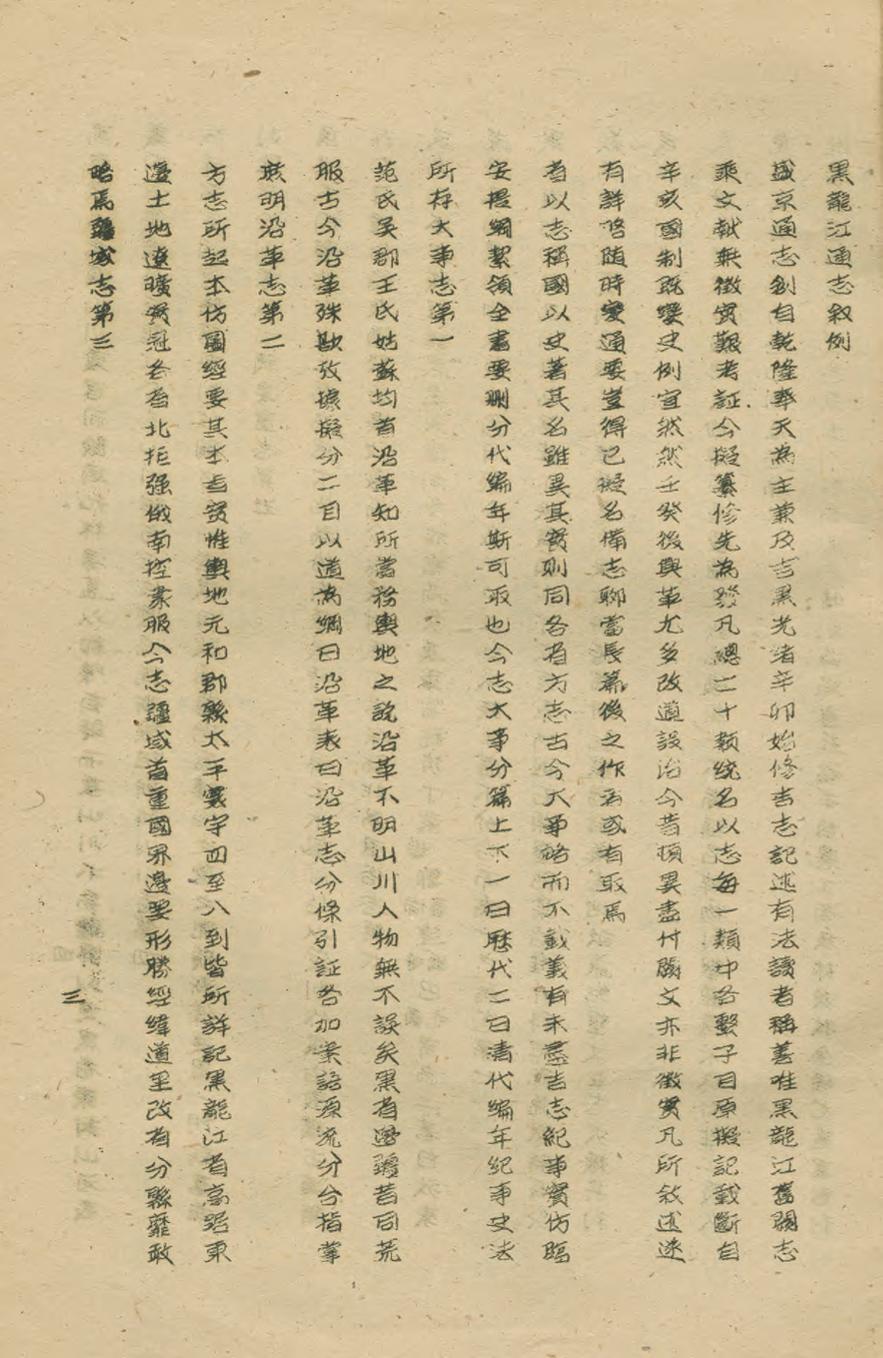 黑龍江通志叙例
盛京通志創自乾隆奉天為主兼及吉黑光绪辛卯始修吉志記述有法讀者稱善唯黑龍江舊闕志
乘文献無徵實艱考証今擬纂修先為發凡總二十類统名以志每一類中各繫子目原擬記载斷自
辛亥國制既變史例宜然然壬癸後興革尤多改道設治今昔頓異盡付闕文亦非徵實凡所敘述遂
有詳略随時變通要豈得已擬名備志聊當長篇後之作者或有取焉
省以志稱國以史著其名雖異其實則同各省方志古今大事略而不載義有未盡吉志紀事實仿臨
安提綱絜領全書要删分代编年斯可取也今志大事分篇上下一曰歷代二曰清代编年纪事史法
所存大事志第一
范氏吴郡王氏姑蘇均首沿革知所當務輿地之説沿革不明山川人物無不誤矣黑省邊疆昔同荒
服古今沿革殊歉攷據擬分二目以道為綱曰沿革表曰沿革志分條引証各加案語源流分合指掌
庶明沿革志第二
方志所起本仿圖經要其本旨實惟輿地元和郡縣太平寰宇四至八到皆所詳記黑龍江省高踞東
邊土地遼曠實冠各省北拒强俄南控蒙服今志疆域首重國界邊要形勝經緯道里改省分縣靡敢
略焉疆域志第三
三